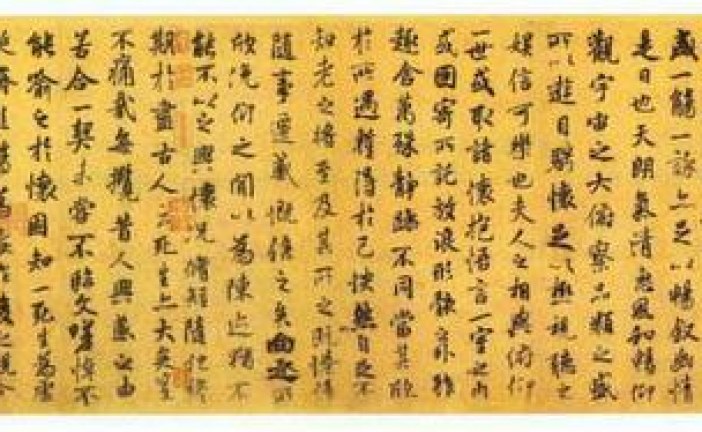 盛一觴一詠亦足以暢敘幽情
是日也天朗氣清惠風和暢仰
觀宇宙之大俯察品類之盛
所以遊目騁懷足以極視聽之
娛信可樂也夫人之相與俯仰
一世或取諸懷抱悟言一室之內
或因寄所託放浪形骸之外雖
趣舍萬殊靜躁不同當其欣
於所遇暫得於己快然自足不
知老之將至及其所之既惓情
隨事遷感慨係之矣向之所
欣俛仰之間以為陳迹猶不
能不以之興懷況脩短隨化終
期於盡古人云死生亦大矣豈
不痛哉每攬昔人興感之由
若合一契未嘗不臨文嗟悼不
能喻之於懷固知一死生為虛